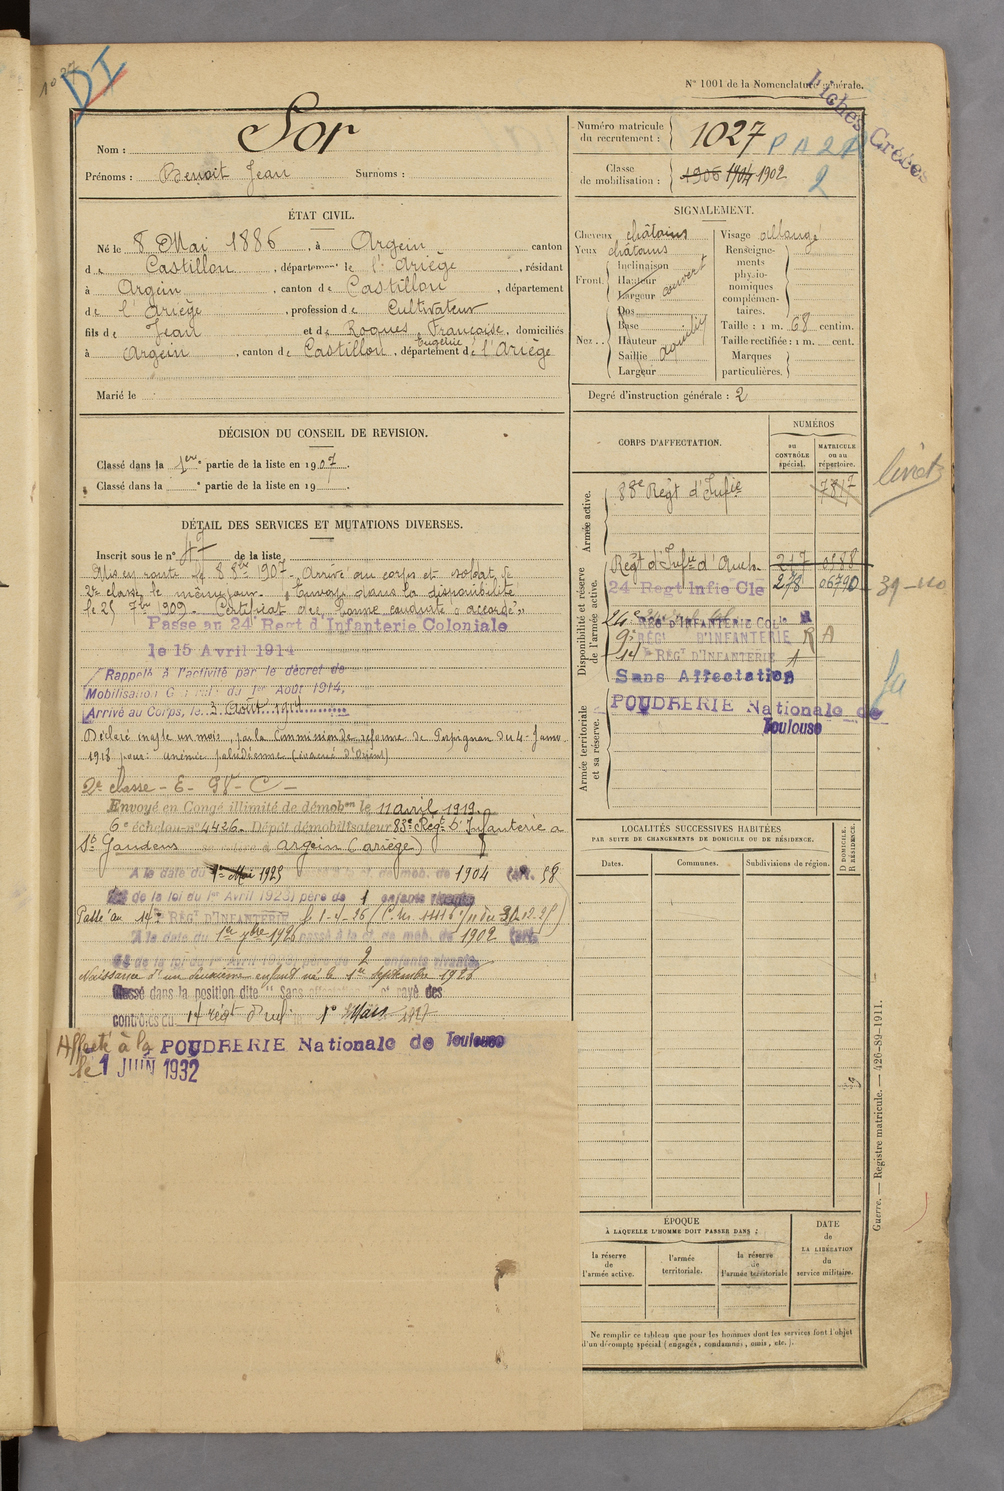 1027
DI
N° 1001 de la Nomenclature générale.
Fiches Créées
Nom : Sor
Prénoms : Benoit Jean Surnoms :
Numéro matricule du recrutement : 1027
P A 2
Classe de mobilisation : 1906 1904 1902
2
ÉTAT CIVIL.
Né le 8 Mai 1886, à Argein canton
de Castillon, département de l'Ariège, résidant
à Argein, canton de Castillon, département
de l'Ariège, profession de Cultivateur
fils de Jean et de Roques Françoise Eugénie, domiciliés
à Argein, canton de Castillon, département de l'Ariège
Marié le
SIGNALEMENT.
Cheveux châtains
Yeux châtains
Front Inclinaison
Hauteur
Largeur
couvert
Nez Dos
Base
Hauteur
Saillie
Largeur
Visage allongé
Renseignements physionomiques complémentaires.
Taille : 1 m. 68 centim.
Taille rectifiée : 1 m. cent.
Marques particulières.
Degré d'instruction générale : 2
DÉCISION DU CONSEIL DE REVISION.
Classé dans la 1ere partie de la liste en 1907.
Classé dans la e partie de la liste en 19
DÉTAIL DES SERVICES ET MUTATIONS DIVERSES.
Inscrit sous le n° 47 de la liste
Mis en route le 8 8bre 1907. Arrivé au corps et soldat de
2e classe le même jour. Envoyé dans la disponibilité
le 25 7bre 1909. Certificat de bonne conduite "accordé"
Passé au 24e Regt d'Infanterie Coloniale
le 15 Avril 1914
Rappelé à l'activité par le décret de
Mobilisation Générale du 1er Août 1914,
Arrivé au Corps, le 3 Août 1914
Déclaré inapte un mois, par la Commission de réforme de Perpignan du 4 Janv.
1918 pour : anémie paludéenne (évacué d'Orient)
2e classe - E - GV - C -
Envoyé en Congé illimité de démobon le 11 avril 1919.
6e échelon n° 4426. Dépôt démobilisateur 83e Régt d'Infanterie a
St Gaudens à Argein (Ariège)
A la date du 1er Mai 1923 cl. de mob. de 1904 (art. 58
de la loi du 1er Avril 1923) père de 1 enfants vivants
Passé au 14e RÉGt D'INFANTERIE le 1-1-26
A la date du 1er 7bre 1926 passé à la cl. de mob. de 1902 (art.
de la loi du 1er Avril 1923) père de 2 enfants vivants.
Naissance d'un deuxième enfant né le 1er Septembre 1926
Classé dans la position dite "Sans affectation" et rayé des
contrôles du 14 régt d'inf. le 1° Mars 1927
Affecté à la POUDRERIE Nationale de Toulouse
le 1 JUIN 1932
CORPS D'AFFECTATION.
NUMÉROS
au CONTRÔLE spécial.
MATRICULE ou au répertoire.
Armée active.
88e Régt d'Infie 7817
Disponibilité et réserve de l'armée active.
Régt d'Infie d'Auch. 217 0588
24 Regt Infie Cle 278 06790
24e RÉGt D'INFANTERIE Cole
9e RÉGt D'INFANTERIE R A
14e RÉGt D'INFANTERIE A
Sans Affectation
Armée territoriale et sa réserve.
POUDRERIE Nationale de
Toulouse
livrets
39-110
LOCALITÉS SUCCESSIVES HABITÉES
PAR SUITE DE CHANGEMENTS DE DOMICILE OU DE RÉSIDENCE.
Dates. Communes. Subdivisions de région.
D DOMICILE.
R RÉSIDENCE.
ÉPOQUE
À LAQUELLE L'HOMME DOIT PASSER DANS :
la réserve de l'armée active.
l'armée territoriale.
la réserve de l'armée territoriale
DATE de LA LIBÉRATION du service militaire.
Ne remplir ce tableau que pour les hommes dont les services font l'objet
d'un décompte spécial (engagés, condamnés, omis, etc.).
Guerre. — Registre matricule. — 426-89-1911.